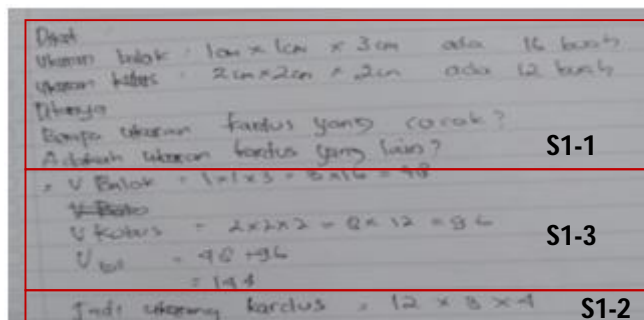 Diket
Ukuran balok : 1cm x 1cm x 3cm ada 16 buah
Ukuran kubus : 2cm x 2cm x 2cm ada 12 buah
Ditanya
Berapa ukuran kardus yang cocok?
Adakah ukuran kardus yang lain?
S1-1
V Balok = 1x1x3 = 3x16 = 48
V Kubus = 2x2x2 = 8x12 = 96
S1-3
V = 48+96
= 144
Jadi ukuran kardus = 12 x 3 x 4
S1-2